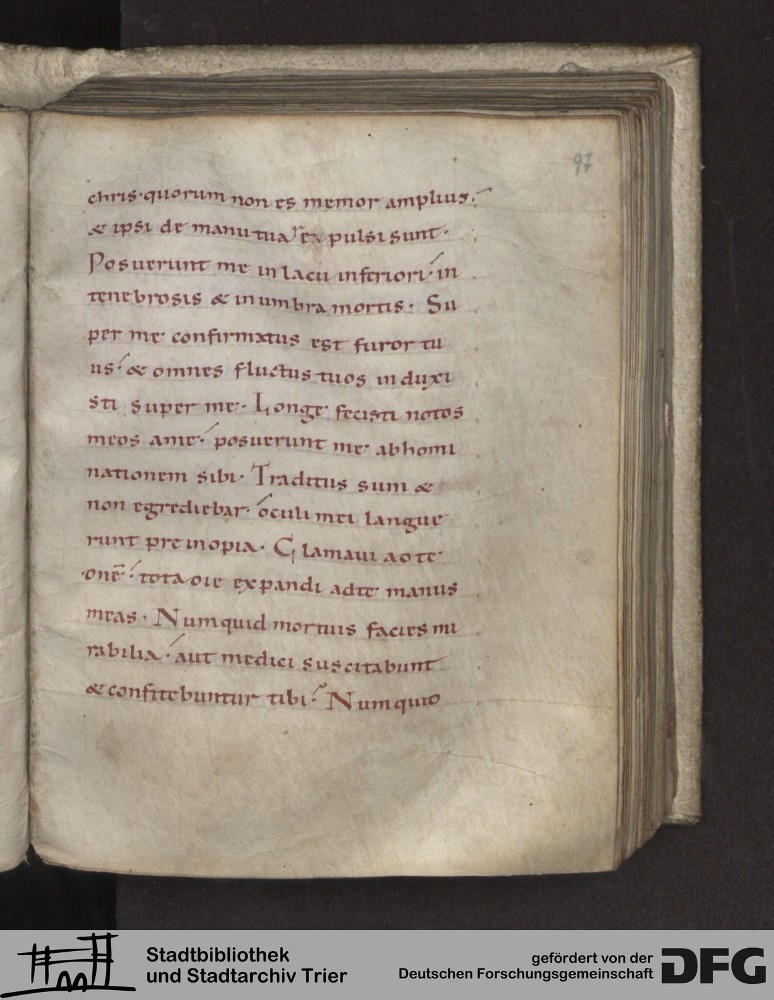 97
chris· quorum non es memor amplius·
& ipsi de manu tua expulsi sunt·
Posuerunt me in lacu inferiori· in
tenebrosis & in umbra mortis· Su
per me confirmatus est furor tu
us· & omnes fluctus tuos induxi
sti super me· Longe fecisti notos
meos a me· posuerunt me abhomi
nationem sibi· Traditus sum &
non egrediebar· oculi mei langue
runt pre inopia· Clamavi ad te
dne· tota die expandi ad te manus
meas· Numquid mortuis facies mi
rabilia· aut medici suscitabunt
& confitebuntur tibi· Numquid
Stadtbibliothek
und Stadtarchiv Trier
gefördert von der
Deutschen Forschungsgemeinschaft
DFG